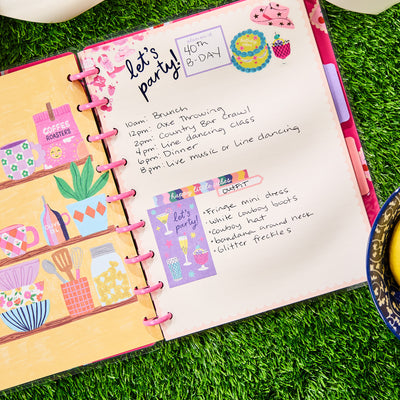 COFFEE
ROASTERS
let's
party!
40th
B-DAY
10am: Brunch
12pm: Axe Throwing
2pm: Country Bar Crawl
4pm: Line dancing class
6pm: Dinner
8pm: Live music or Line dancing
OUTFIT
let's
PARTY
• Fringe mini dress
• White cowboy boots
• cowboy hat
• bandana around neck
• Glitter freckles